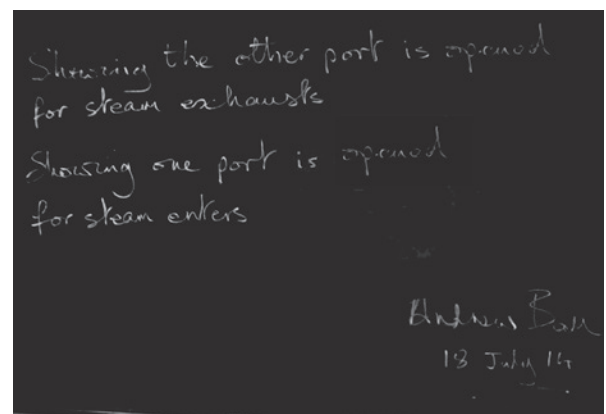 Showing the other port is opened
for steam exhausts
Showing one port is opened
for steam enters
Andrew Ball
18 July 14